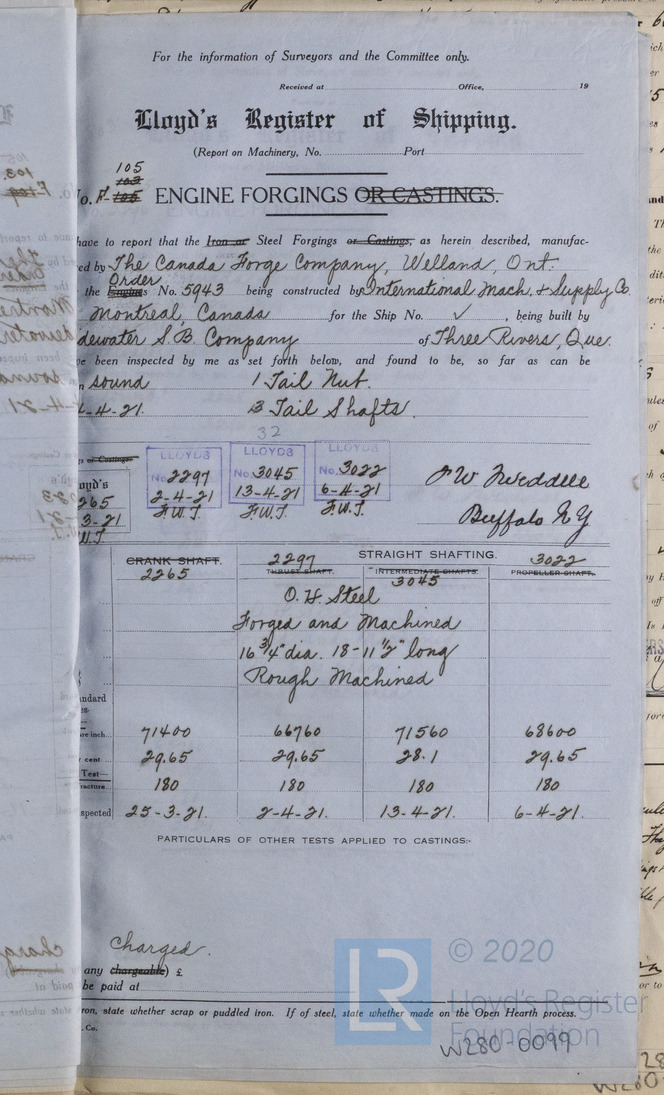 For the information of Surveyors and the Committee only.
Received at Office, 19
Lloyd's Register of Shipping.
(Report on Machinery, No. Port
105
103
o. F-105 ENGINE FORGINGS OR CASTINGS.
have to report that the Iron or Steel Forgings or Castings, as herein described, manufac-
ed by The Canada Forge Company, Welland, Ont.
Order
the Engines No. 5943 being constructed by International Mach. & Supply Co
Montreal, Canada for the Ship No. ✓, being built by
dewater S.B. Company of Three Rivers, Que.
ve been inspected by me as set forth below, and found to be, so far as can be
n sound 1 Tail Nut.
4-21. 3 Tail Shafts.
32
s or Castings
oyd's
265
3-21
W.T.
LLOYDS
No. 2297
2-4-21
F.W.T.
LLOYDS
No. 3045
13-4-21
F.W.T.
LLOYDS
No. 3022
6-4-21
F.W.T.
Buffalo N.Y
STRAIGHT SHAFTING.
CRANK SHAFT. 2297 3022
2265 THRUST SHAFT. INTERMEDIATE SHAFTS. PROPELLER SHAFT.
3045
O.H. Steel
Forged and Machined
16 3/4" dia. 18-11 1/2" long
Rough Machined
andard
es-
are inch... 71400 66760 71560 68600
r cent 29.65 29.65 28.1 29.65
Test—
racture... 180 180 180 180
spected 25-3-21. 2-4-21. 13-4-21. 6-4-21.
PARTICULARS OF OTHER TESTS APPLIED TO CASTINGS:-
Charged.
any chargeable) £
be paid at
ron, state whether scrap or puddled iron. If of steel, state whether made on the Open Hearth process.
. Co.
LR
© 2020
Lloyd's Register
Foundation
W280-0099